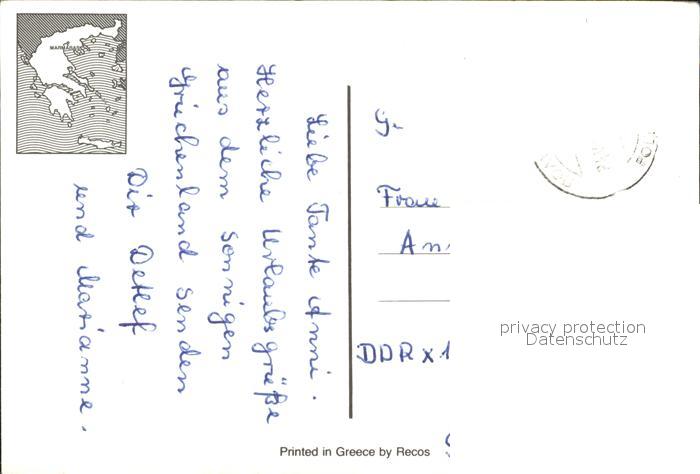 MARMARAS
Liebe Tante Anni.
Herzliche Urlaubsgrüße
aus dem sonnigen
Griechenland senden
Dir Detlef
und Marianne.
Frau
An
DDR x 1
Printed in Greece by Recos
privacy protection
Datenschutz